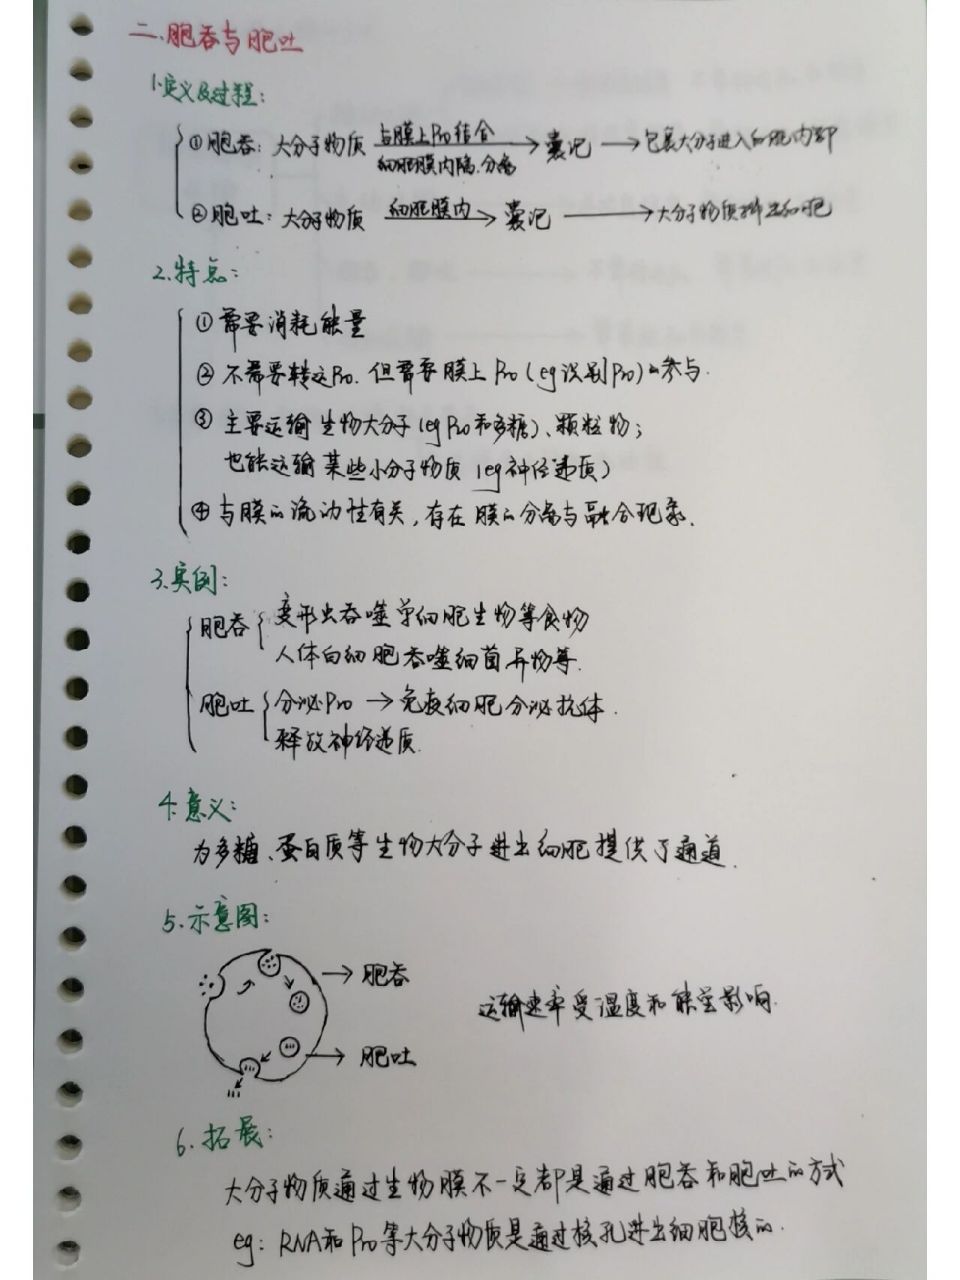 二.胞吞与胞吐
1.定义及过程:
①胞吞: 大分子物质 与膜上Pro结合 细胞膜内陷.分离 → 囊泡 → 包裹大分子进入细胞内部
②胞吐: 大分子物质 细胞膜内 → 囊泡 → 大分子物质排出细胞
2.特点:
①需要消耗能量
②不需要转运Pro.但需要膜上Pro(eg识别Pro)的参与.
③主要运输生物大分子(eg Pro和多糖)、颗粒物;
也能运输某些小分子物质(eg神经递质)
④与膜的流动性有关,存在膜的分离与融合现象.
3.实例:
胞吞 变形虫吞噬单细胞生物等食物
人体白细胞吞噬细菌异物等.
胞吐 分泌Pro → 免疫细胞分泌抗体.
释放神经递质.
4.意义:
为多糖、蛋白质等生物大分子进出细胞提供了通道.
5.示意图:
→ 胞吞
运输速率受温度和能量影响.
→ 胞吐
6.拓展:
大分子物质通过生物膜不一定都是通过胞吞和胞吐的方式
eg: RNA和Pro等大分子物质是通过核孔进出细胞核的.